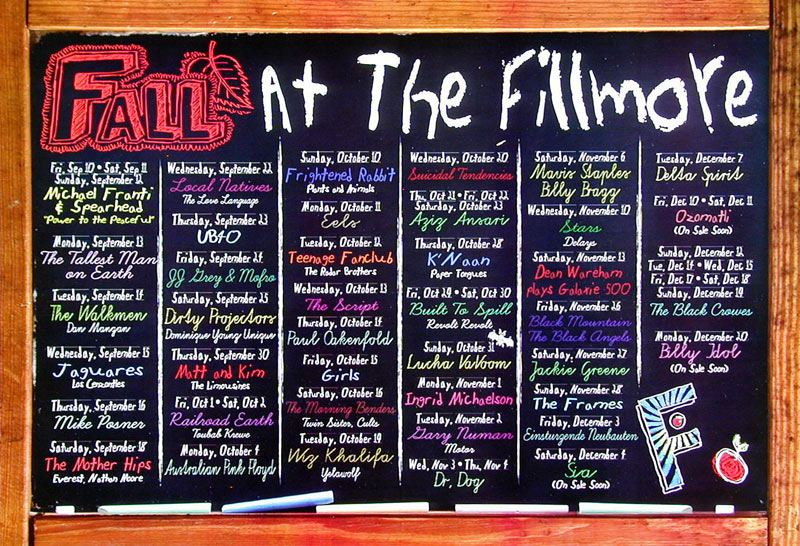 Fall At The Fillmore
Fri, Sep 10 • Sat, Sep 11
Sunday, September 12
Michael Franti
& Spearhead
"Power to the Peaceful"
Monday, September 13
The Tallest Man
on Earth
Tuesday, September 14
The Walkmen
Dan Mangan
Wednesday, September 15
Jaguares
Los Cenzontles
Thursday, September 16
Mike Posner
Saturday, September 18
The Mother Hips
Everest, Nathan Moore
Wednesday, September 22
Local Natives
The Love Language
Thursday, September 23
UB40
Friday, September 24
JJ Grey & Mofro
Saturday, September 25
Dirty Projectors
Dominique Young Unique
Thursday, September 30
Matt and Kim
The Limousines
Fri, Oct 1 • Sat, Oct 2
Railroad Earth
Toubab Krewe
Monday, October 4
Australian Pink Floyd
Sunday, October 10
Frightened Rabbit
Plants and Animals
Monday, October 11
Eels
Tuesday, October 12
Teenage Fanclub
The Radar Brothers
Wednesday, October 13
The Script
Thursday, October 14
Paul Oakenfold
Friday, October 15
Girls
Saturday, October 16
The Morning Benders
Twin Sister, Cults
Tuesday, October 19
Wiz Khalifa
Yelawolf
Wednesday, October 20
Suicidal Tendencies
Thu, Oct 21 • Fri, Oct 22
Saturday, October 23
Aziz Ansari
Thursday, October 28
K'Naan
Paper Tongues
Fri, Oct 29 • Sat, Oct 30
Built To Spill
Revolt Revolt
Sunday, October 31
Lucha VaVoom
Monday, November 1
Ingrid Michaelson
Tuesday, November 2
Gary Numan
Motor
Wed, Nov 3 • Thu, Nov 4
Dr. Dog
Saturday, November 6
Mavis Staples
Billy Bragg
Wednesday, November 10
Stars
Delays
Saturday, November 13
Dean Wareham
plays Galaxie 500
Friday, November 26
Black Mountain
The Black Angels
Saturday, November 27
Jackie Greene
Sunday, November 28
The Frames
Friday, December 3
Einsturzende Neubauten
Saturday, December 4
Sia
(On Sale Soon)
Tuesday, December 7
Delta Spirit
Fri, Dec 10 • Sat, Dec 11
Ozomatli
(On Sale Soon)
Sunday, December 12
Tue, Dec 14 • Wed, Dec 15
Fri, Dec 17 • Sat, Dec 18
Sunday, December 19
The Black Crowes
Monday, December 20
Billy Idol
(On Sale Soon)
F